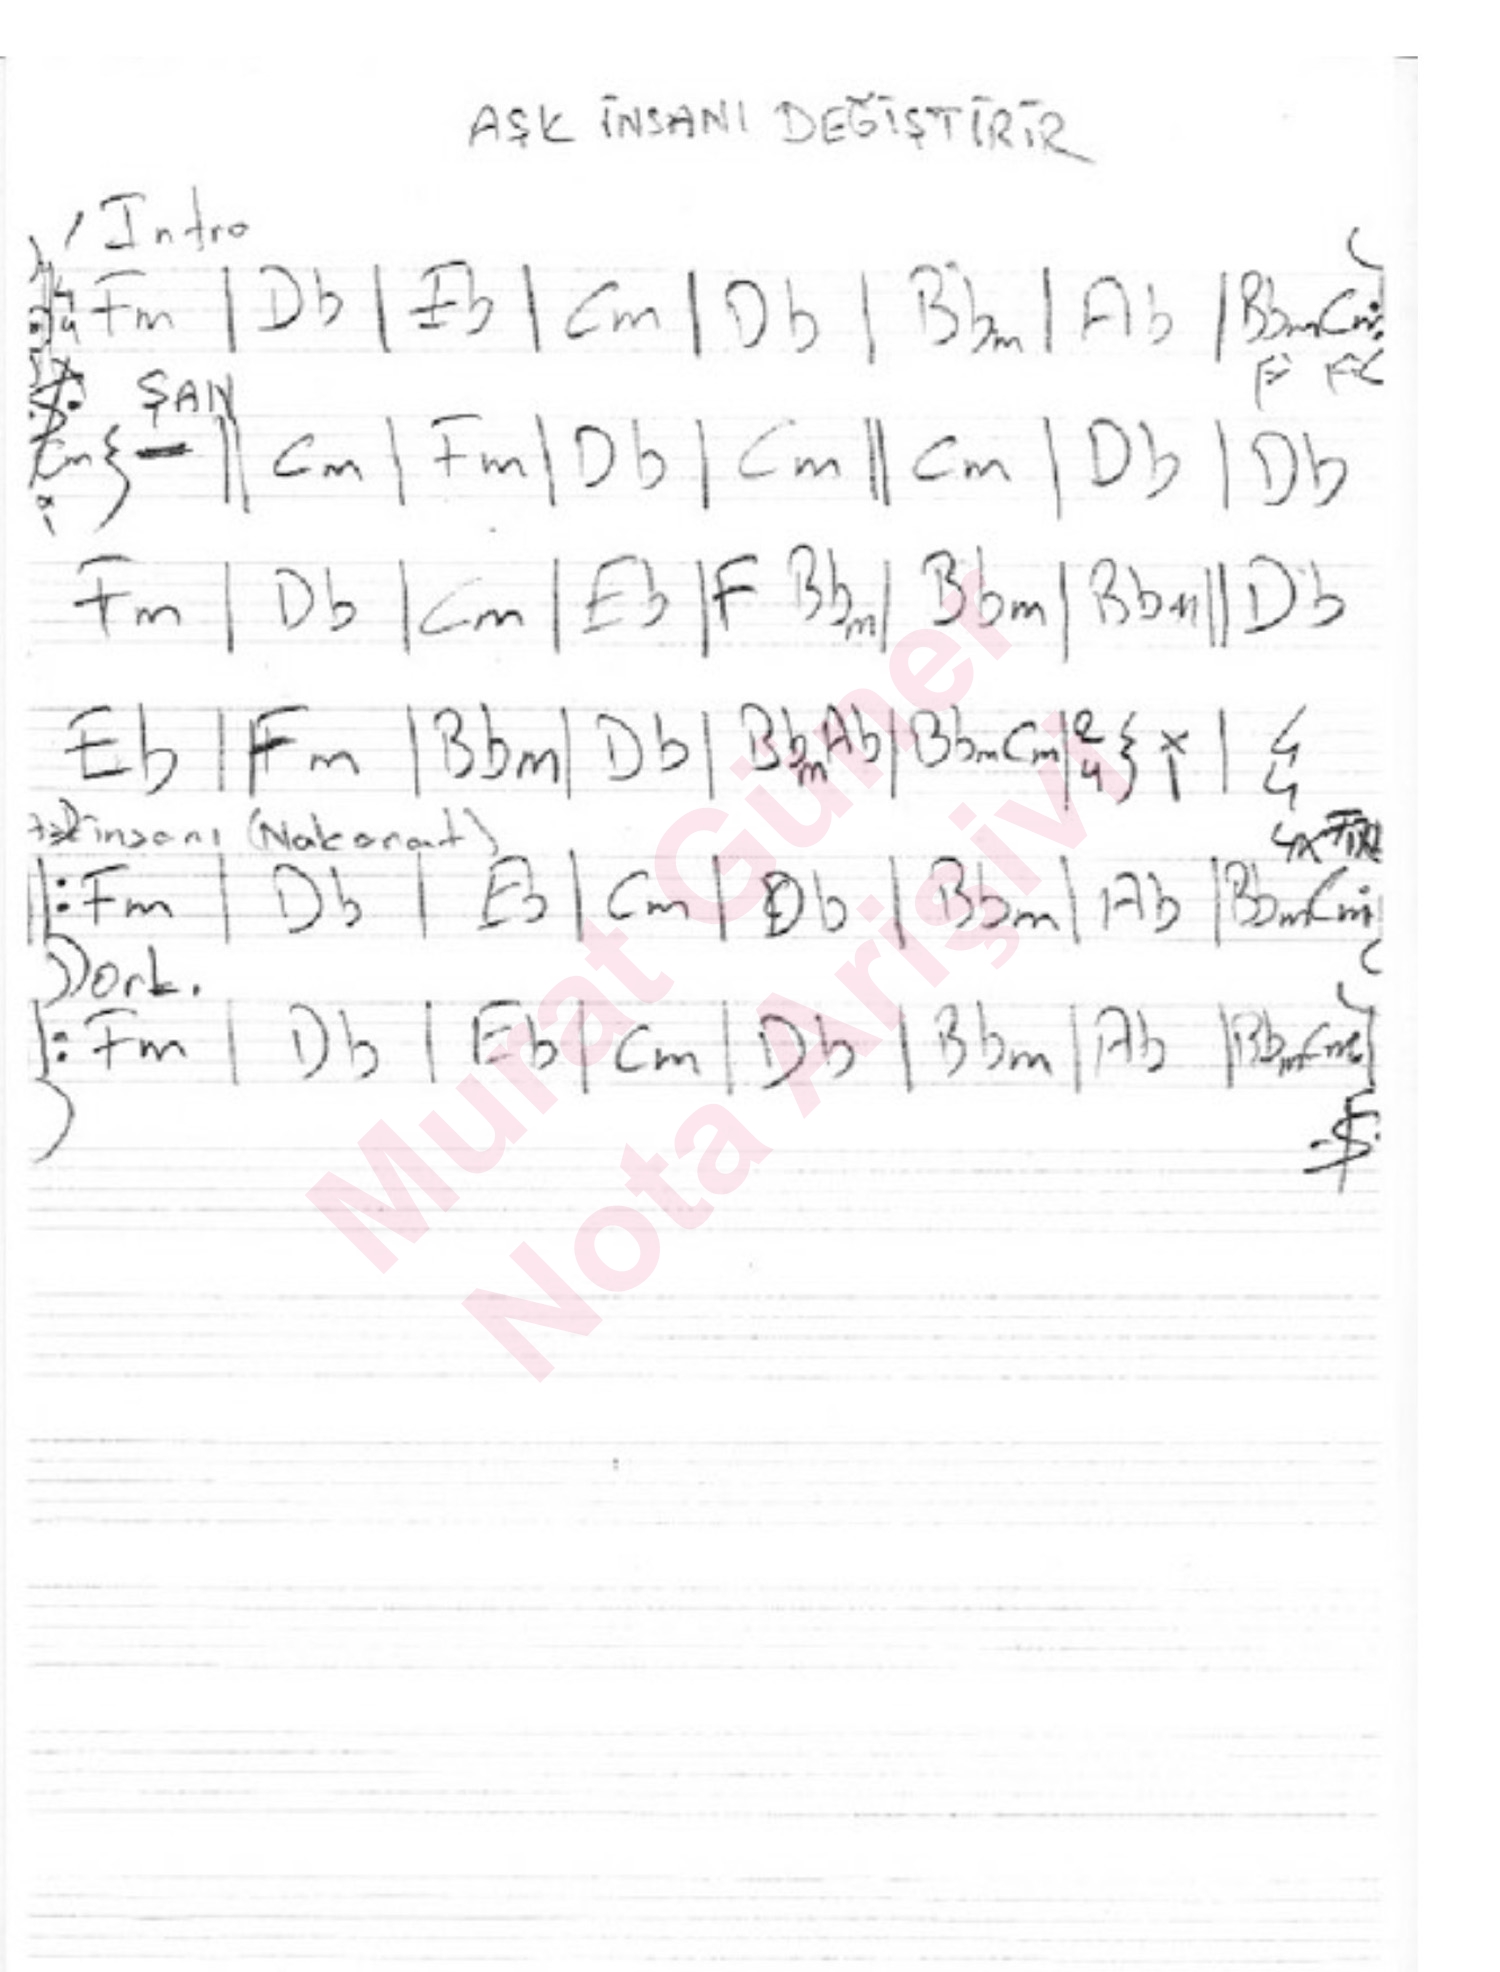 AŞK İNSANI DEĞİŞTİRİR
Intro
4/4 Fm | Db | Eb | Cm | Db | Bbm | Ab | Bbm Cm :
ŞAN
Cm } – || Cm | Fm | Db | Cm || Cm | Db | Db
Fm | Db | Cm | Eb | F Bbm | Bbm | Bbm || Db
Eb | Fm | Bbm | Db | Bbm Ab | Bbm Cm | 2/4 } x | 4/4
insanı (Nakarat)
||: Fm | Db | Eb | Cm | Db | Bbm | Ab | Bbm Cm :
ork.
|: Fm | Db | Eb | Cm | Db | Bbm | Ab | Bbm Cm
Murat Güner
Nota Arişivi